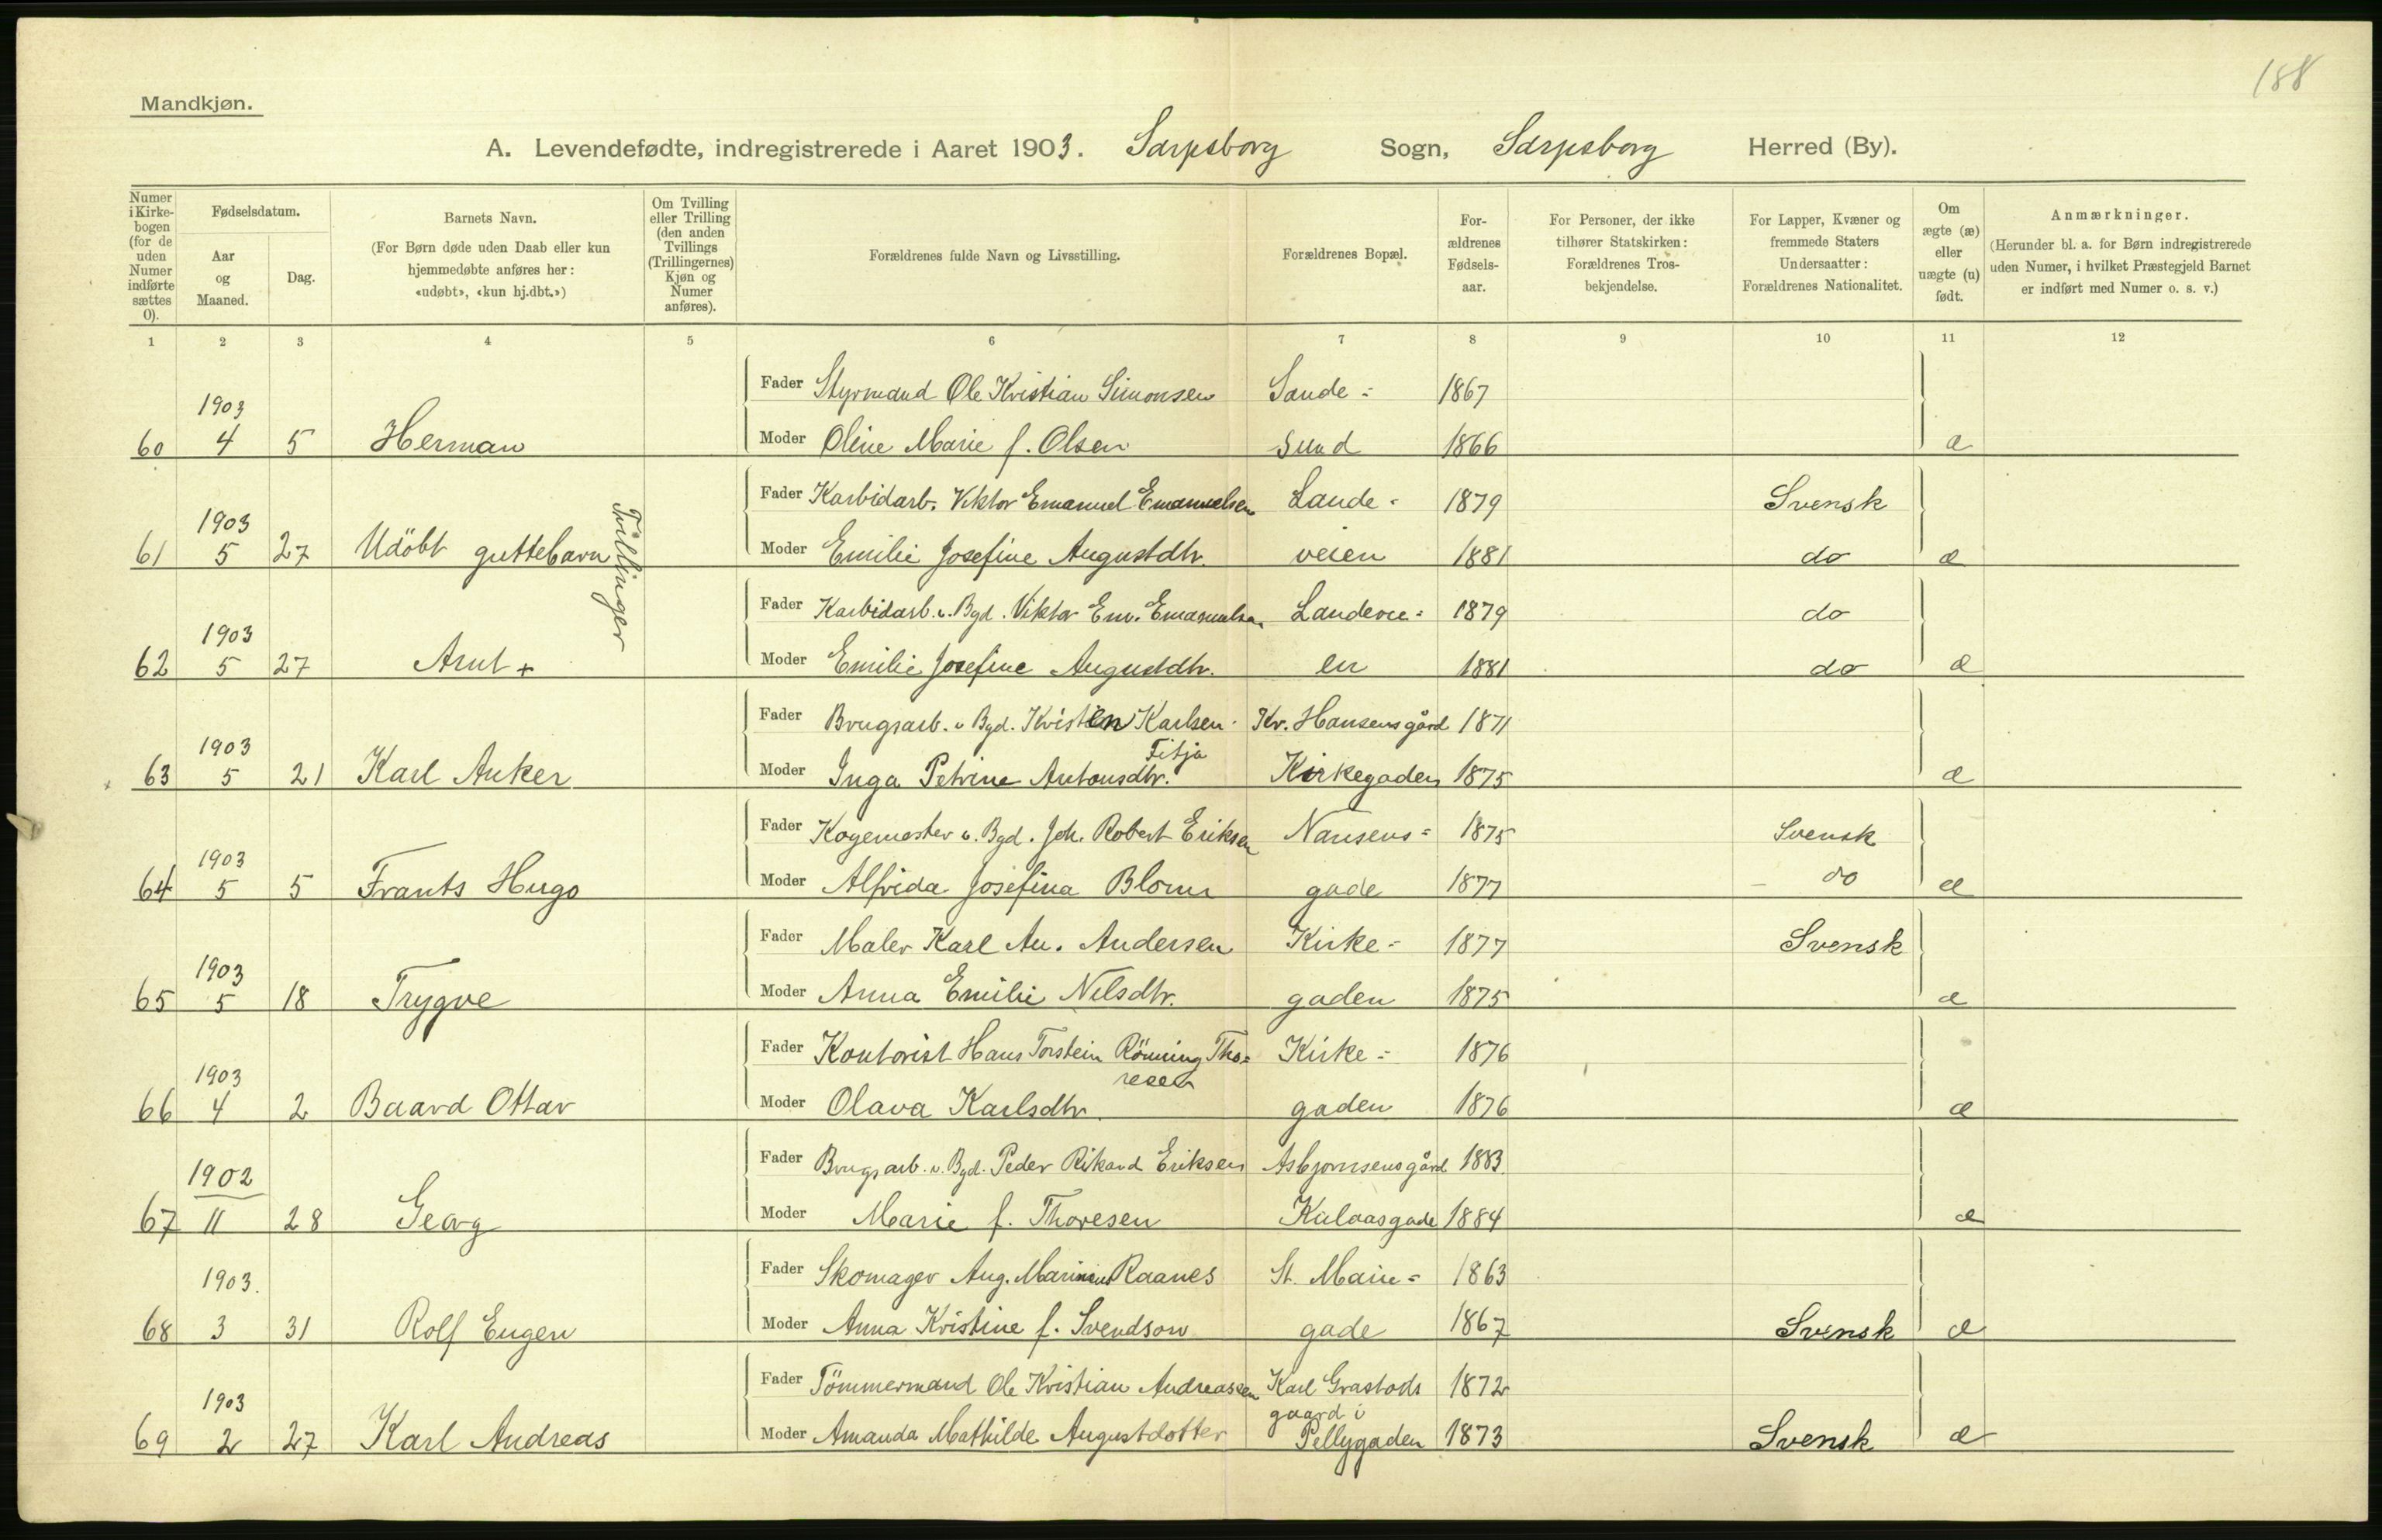 188
Mandkjøn.
A. Levendefødte, indregistrerede i Aaret 1903. Sarpsborg Sogn, Sarpsborg Herred (By).
Numer i Kirkebogen (for de uden Numer indførte sættes 0).
Fødselsdatum.
Aar og Maaned.
Dag.
Barnets Navn.
(For Børn døde uden Daab eller kun hjemmedøbte anføres her: «udøbt», «kun hj.dbt.»)
Om Tvilling eller Trilling (den anden Tvillings (Trillingernes) Kjøn og Numer anføres).
Forældrenes fulde Navn og Livsstilling.
Forældrenes Bopæl.
Forældrenes Fødselsaar.
For Personer, der ikke tilhører Statskirken: Forældrenes Trosbekjendelse.
For Lapper, Kvæner og fremmede Staters Undersaatter: Forældrenes Nationalitet.
Om ægte (æ) eller uægte (u) født.
Anmærkninger.
(Herunder bl. a. for Børn indregistrerede uden Numer, i hvilket Præstegjeld Barnet er indført med Numer o. s. v.)
1 2 3 4 5 6 7 8 9 10 11 12
Fader Styrmand Ole Kristian Simonsen Sande= 1867
1903
60 4 5 Herman Moder Oline Marie f. Olsen sund 1866 æ
Fader Karbidarb. Viktor Emanuel Emanuelsen Lande= 1879 Svensk
1903
61 5 27 Udöbt guttebarn Moder Emilie Josefine Augustdtr. veien 1881 do æ
Tvillinger
Fader Karbidarb. v. Bgd. Viktor Em. Emanuelsen Landevei= 1879 do
1903
62 5 27 Arnt + Moder Emilie Josefine Augustdtr. en 1881 do æ
Fader Brugsarb. v Bgd. Kristen Karlsen Kr. Hansensgård 1871
Titja
1903
63 5 21 Karl Anker Moder Inga Petrine Antonsdtr. Kirkegaden 1875 æ
Fader Kogemester v. Bgd. Joh. Robert Eriksen Nansens= 1875 Svensk
1903
64 5 5 Frants Hugo Moder Alfrida Josefina Blom gade 1877 do æ
Fader Maler Karl An. Andersen Kirke= 1877 Svensk
1903
65 5 18 Trygve Moder Anna Emilie Nilsdtr. gaden 1875 æ
Fader Kontorist Hans Torstein Rönning Tho= Kirke= 1876
resen
1903
66 4 2 Baard Ottar Moder Olava Karlsdtr. gaden 1876 æ
Fader Brugsarb. v. Bgd. Peder Rikard Eriksen Asbjornsensgård 1883
1902
67 11 28 Georg Moder Marie f. Thoresen Kulaasgade 1884 æ
Fader Skomager Aug. Marinius Raanes St. Marie= 1863
1903.
68 3 31 Rolf Eugen Moder Anna Kristine f. Svendson gade 1867 Svensk æ
Fader Tömmermand Ole Kristian Andreassen Karl Grastads 1872
gaard i
1903
69 2 27 Karl Andreas Moder Amanda Mathilde Augustdotter Pellygaden 1873 Svensk æ